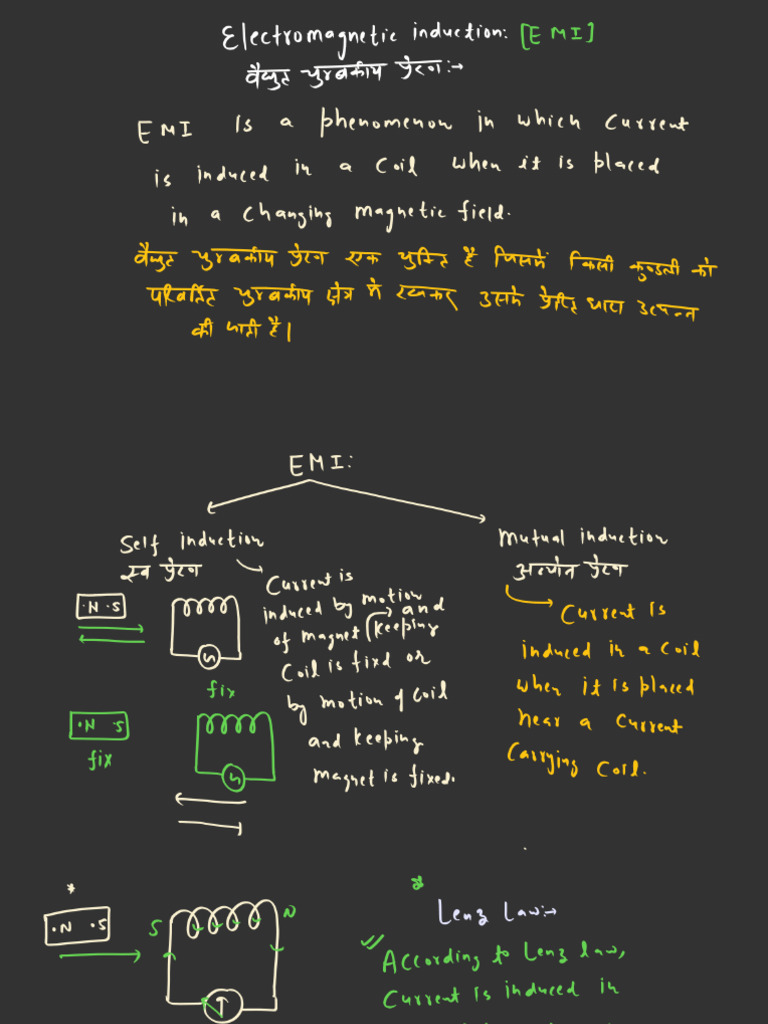 Electromagnetic induction: [EMI]
वैद्युत चुम्बकीय प्रेरण :→
EMI is a phenomenon in which Current
is induced in a Coil when it is placed
in a Changing magnetic field.
वैद्युत चुम्बकीय प्रेरण एक युक्ति है जिसमें किसी कुण्डली को
परिवर्तित चुम्बकीय क्षेत्र में रखकर उसमे प्रेरित धारा उत्पन्न
की जाती है।
EMI:
Self induction
स्व प्रेरण
Current is
induced by motion
of magnet and
keeping
Coil is fixd or
by motion of Coil
and keeping
magnet is fixed.
.N .S
fix
.N S
fix
mutual induction
अन्योन प्रेरण
Current is
induced in a Coil
when it is placed
near a Current
Carrying Coil.
*
.N .S
S
N
*
Lenz Law:→
According to Lenz law,
Current is induced in